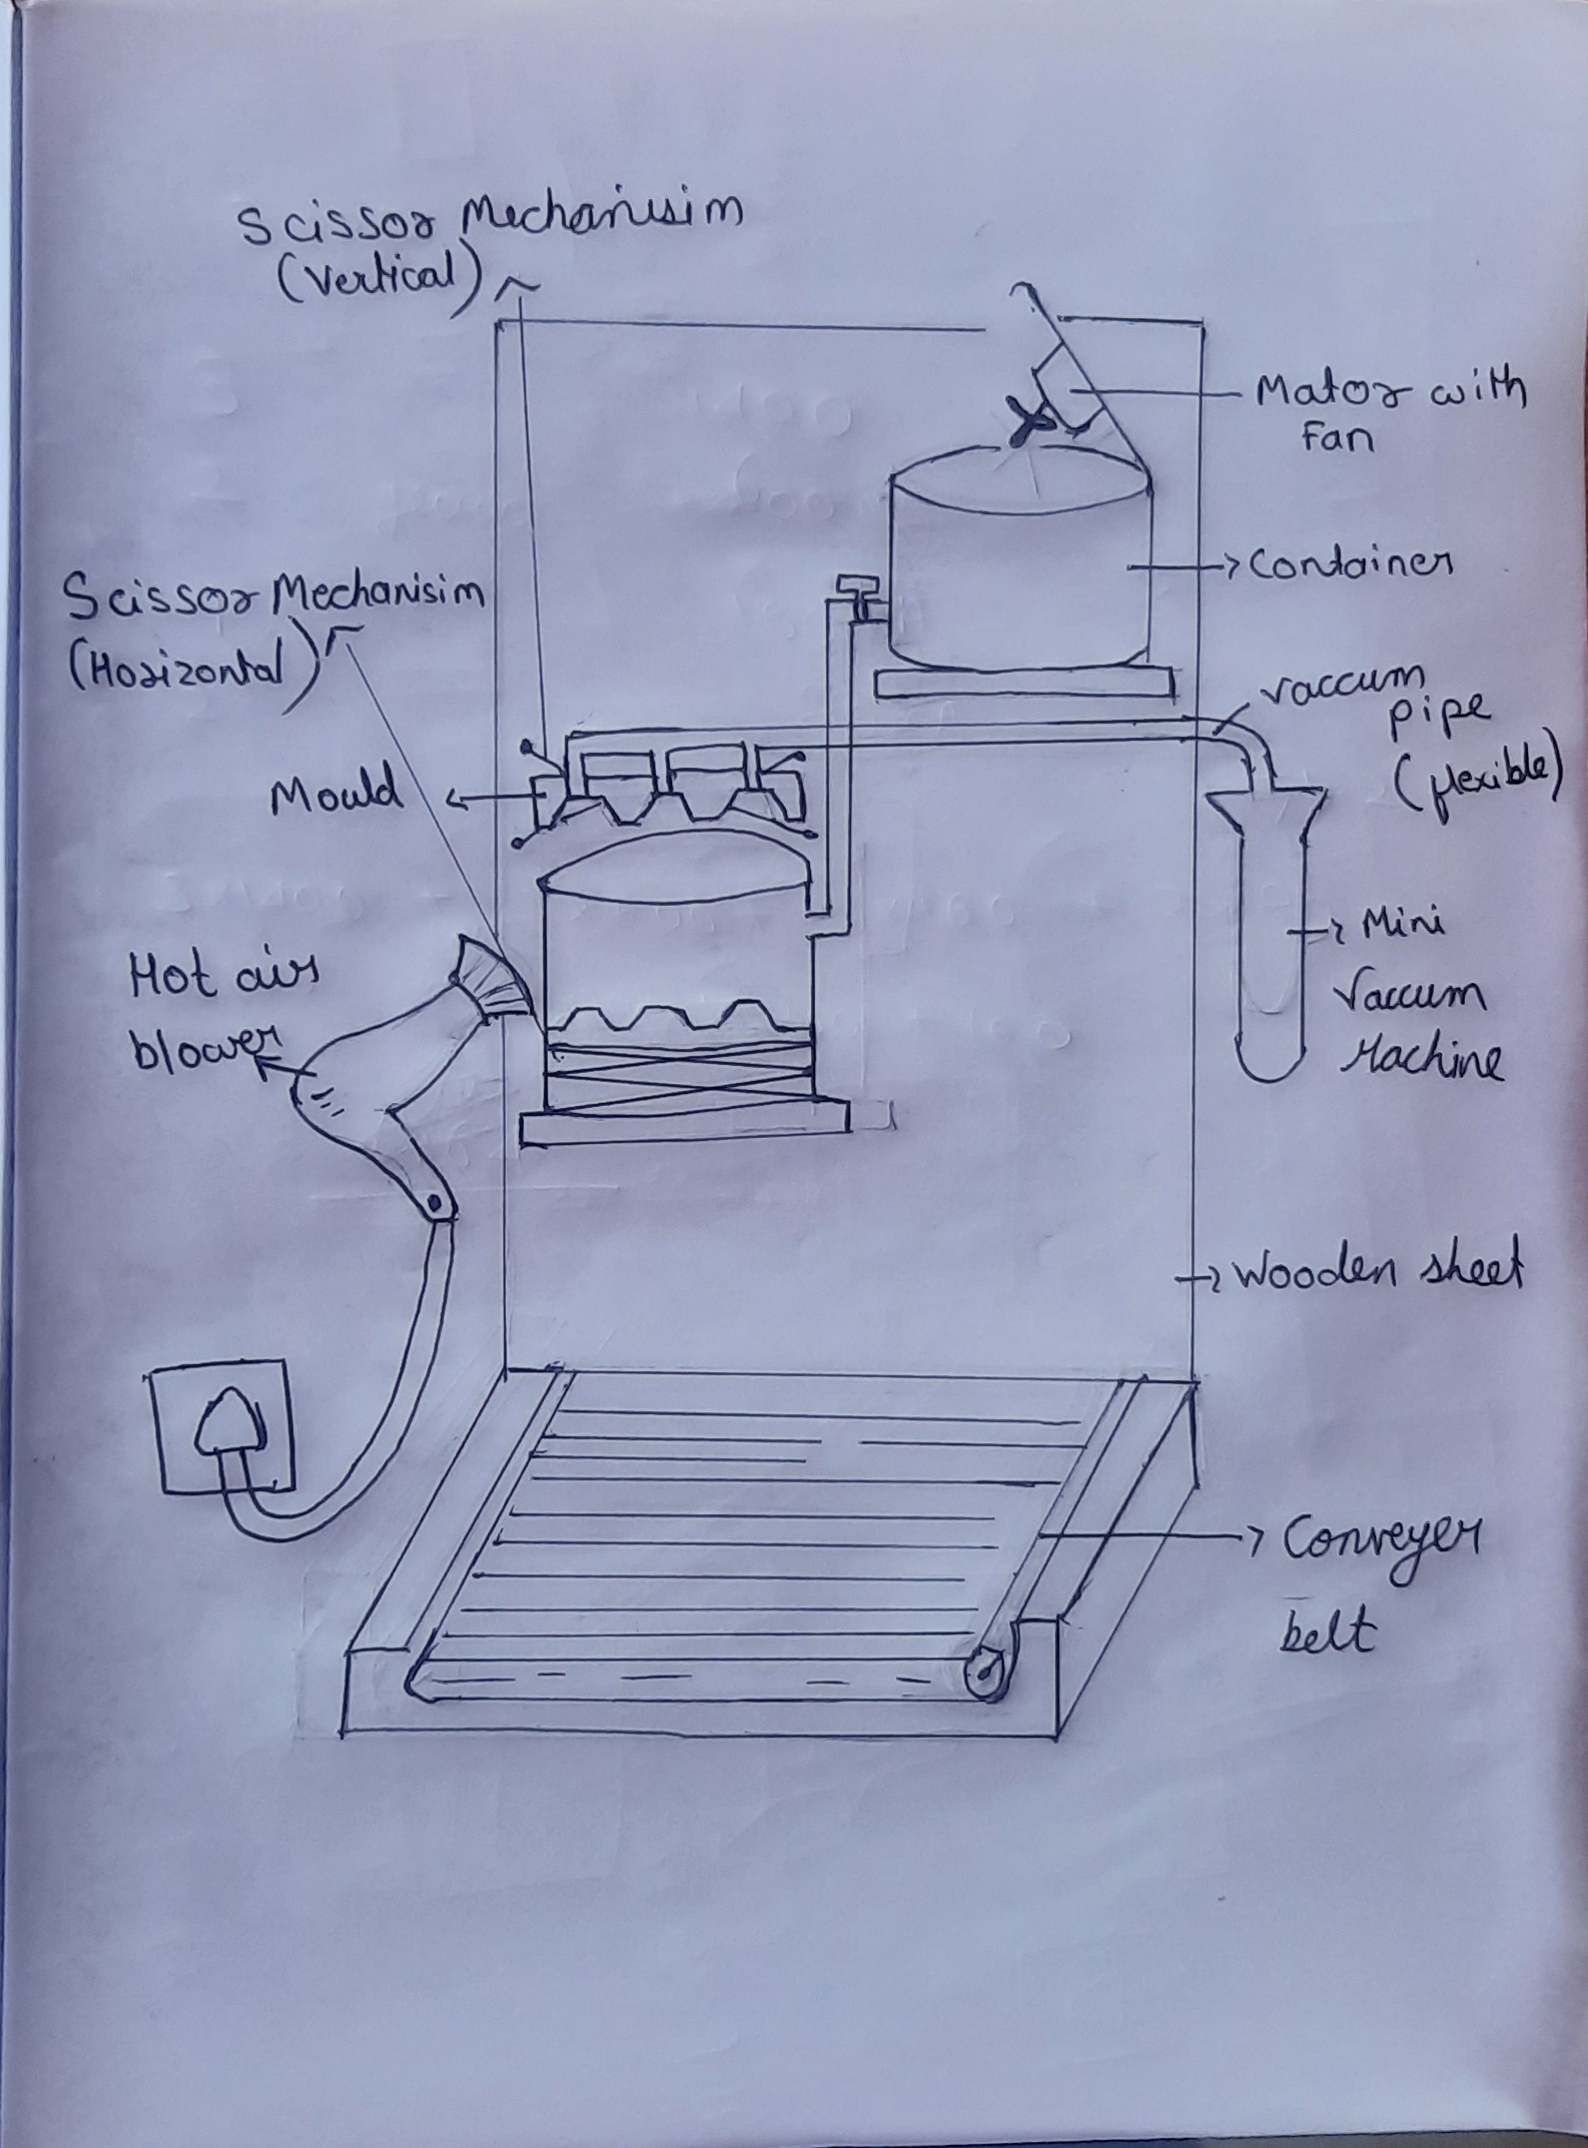 Scissor Mechanisim
(Vertical)
Mator with
Fan
Container
Scissor Mechanisim
(Horizontal)
vaccum
pipe
(flexible)
Mould
Mini
Vaccum
Machine
Hot air
blower
Wooden sheet
Conveyer
belt